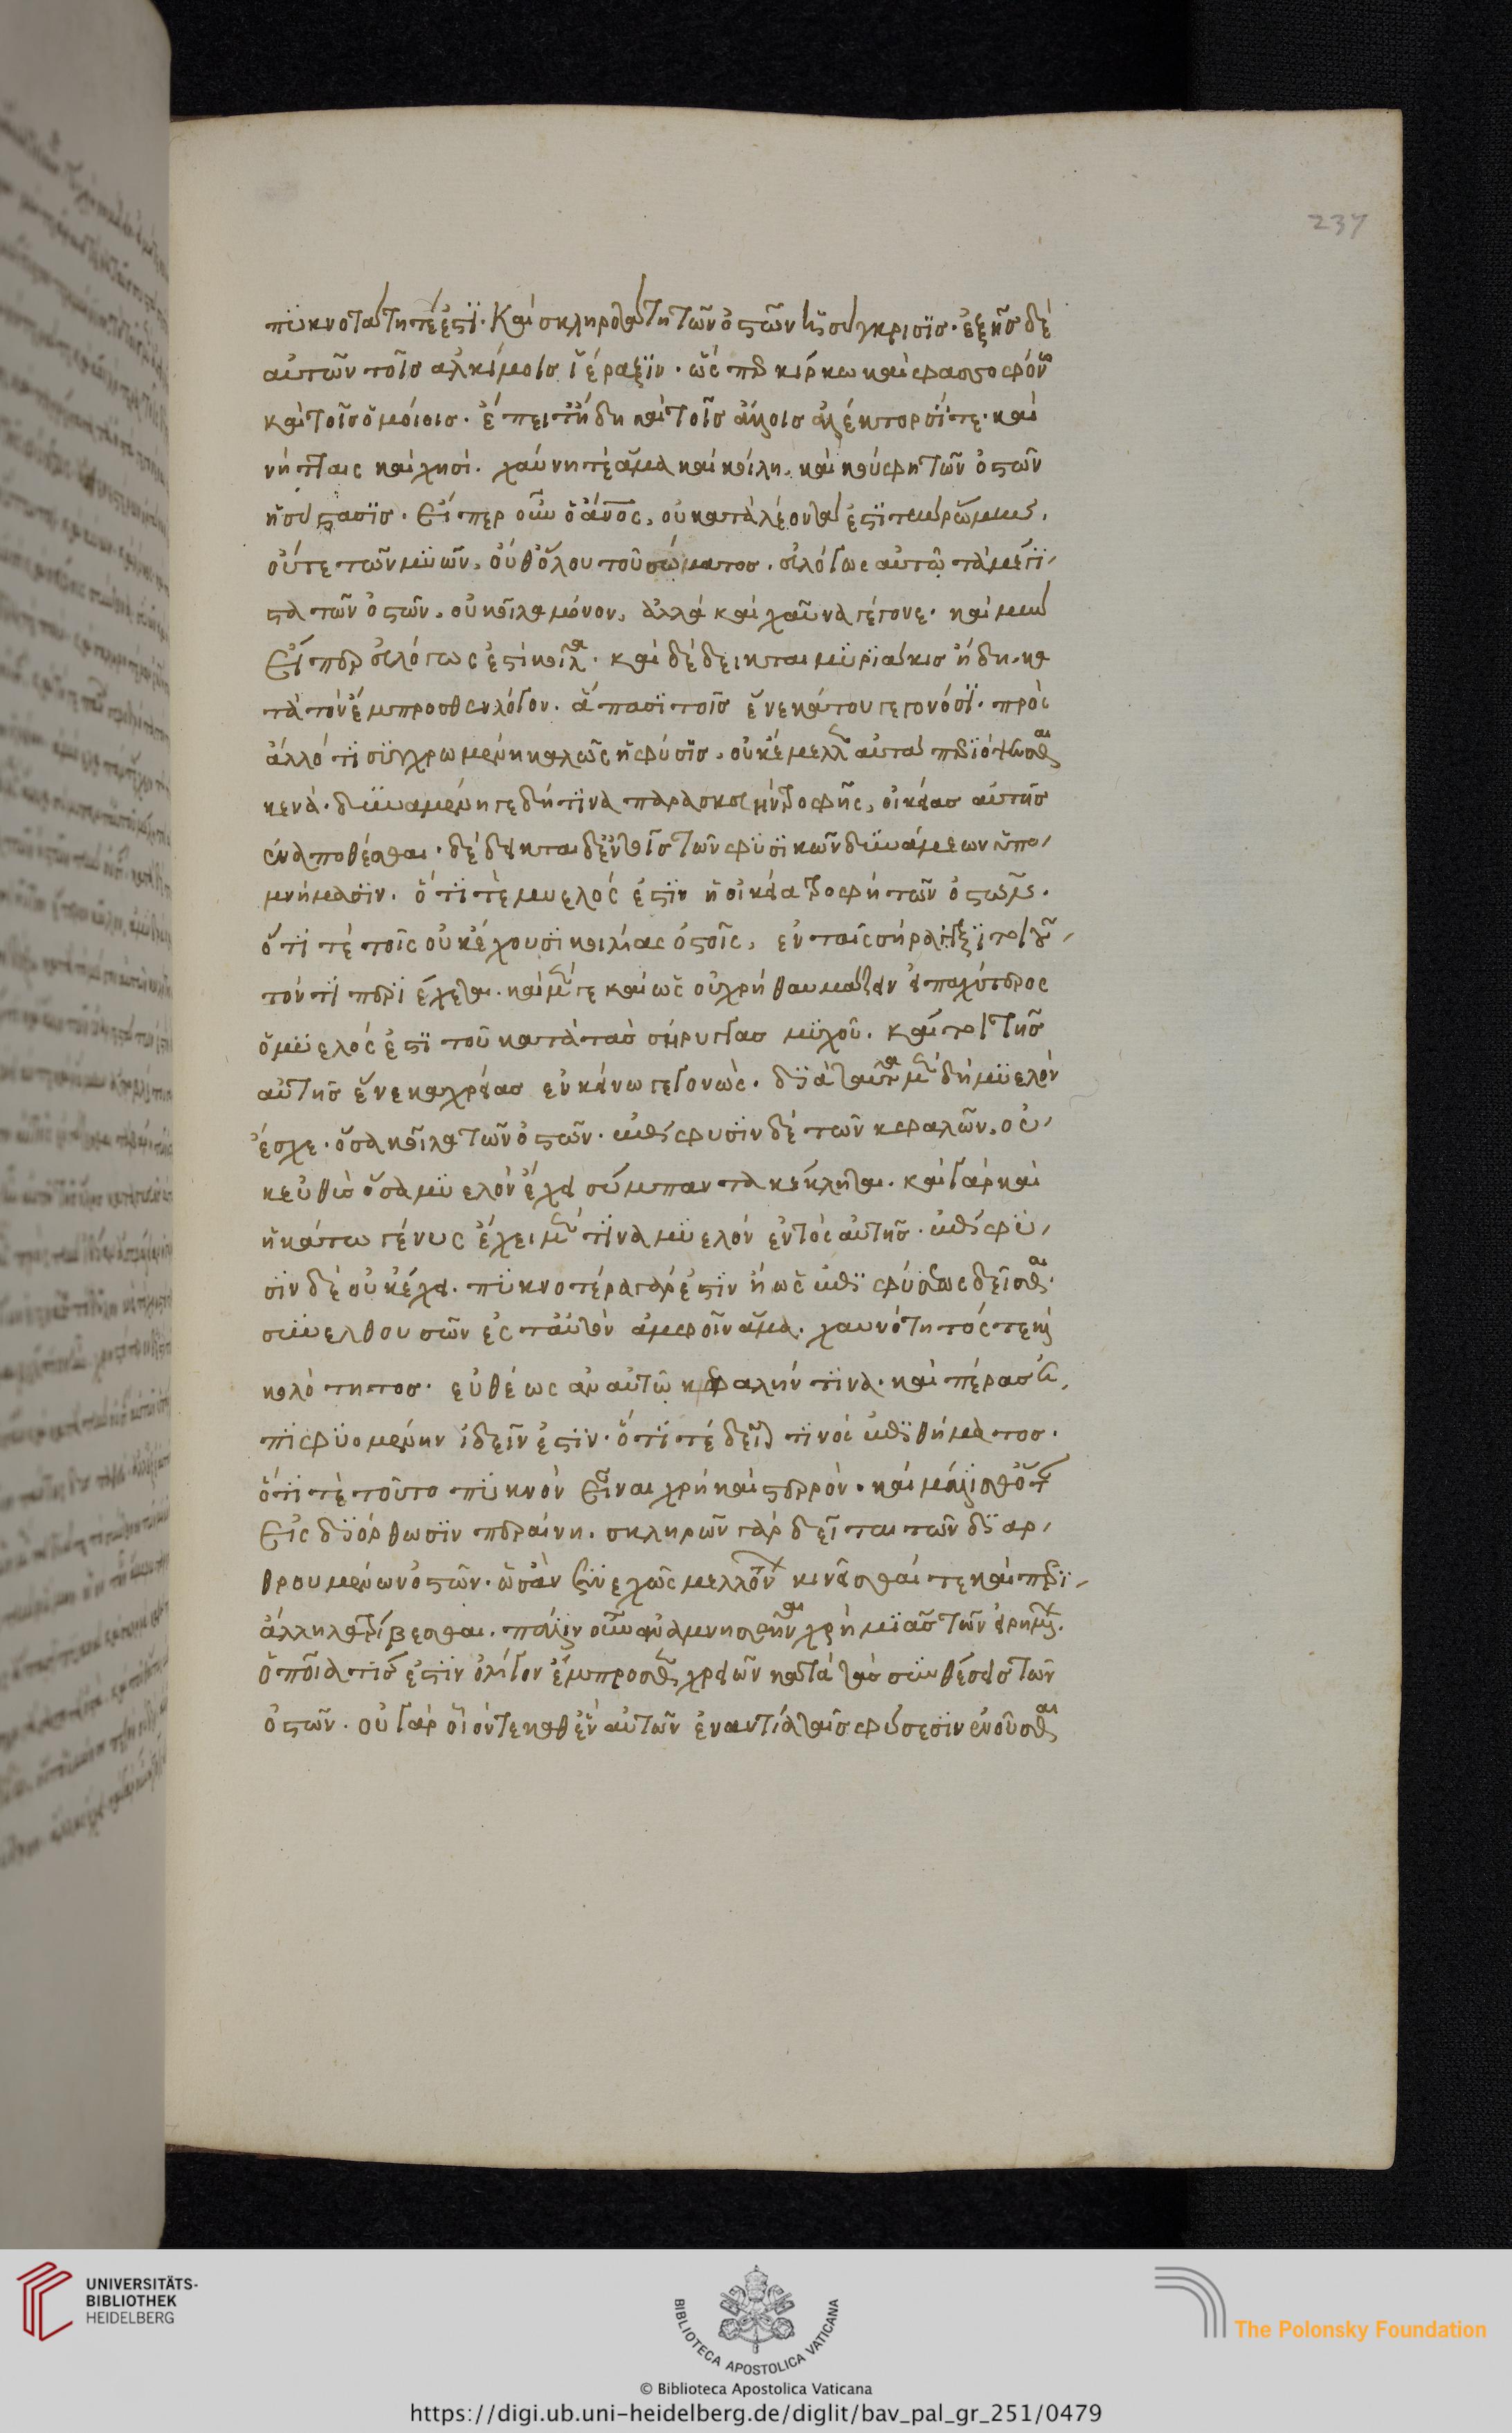 237
πυκνοτάτη τέ ἐστι· καὶ σκληροτάτη τῶν ὀστῶν ἡ σύγκρισις· ἐξῆς δὲ
αὐτῶν τοῖς ἀλκίμοις ἱέραξιν· ὥσπερ κίρκω καὶ φασσοφόνω
καὶ τοῖς ὁμοίοις· ἔπειτ' ἤδη καὶ τοῖς ἄλλοις ἀλέκτορσί τε· καὶ
νήτταις καὶ χησί· χαύνη τὲ ἅμα καὶ κοίλη· καὶ κούφη τῶν ὀστῶν
ἡ σύστασις· Εἴπερ οὖν ὁ ἄνος, οὐ κατὰ λέοντα ἐστὶ τὴν ῥώμην,
οὔτε τῶν μυῶν, οὔθ' ὅλου τοῦ σώματος, εἰκότως αὐτῶ τὰ μέγι-
στα τῶν ὀστῶν, οὐ κοῖλα μόνον, ἀλλὰ καὶ χαῦνα γέγονε· καὶ μὴν
Εἴπερ εἰκότως ἐστὶ κοῖλα· καὶ δέδεικται μυριάκις ἤδη κα
τὰ τὸν ἔμπροσθεν λόγον· ἅπασι τοῖς ἕνεκά του γεγονόσι· πρὸς
ἄλλό τι συγχρωμένη καλῶς ἡ φύσις· οὐκ ἔμελλεν αὐτὰ περιόψεσθαι
κενά· δυναμένη γε δή τινα παρασκευὴν τροφῆς, οἰκείας αὐτῆς
ἐναποθέσθαι· δέδεικται δ' ἐν τοῖς τῶν φυσικῶν δυνάμεων ὑπο-
μνήμασιν· ὅτι τὲ μυελός ἐστιν ἡ οἰκεία τροφὴ τῶν ὀστῶν·
ὅτι τὲ τοῖς οὐκ ἔχουσι κοιλίας ὀστοῖς, ἐν ταῖς σήραγξι τοιοῦ-
τόν τι περιέχεται· καὶ μέν γε καὶ ὡς οὐ χρὴ θαυμάζειν εἰ παχύτερος
ὁ μυελός ἐστι τοῦ κατὰ τὰς σήραγγας μυχοῦ· καίτοι τῆς
αὐτῆς ἕνεκα χρείας ἐν κείνω γεγονὼς· διὰ ταῦτα μὲν δὴ μυελὸν
ἔσχε· ὅσα κοῖλα τῶν ὀστῶν· ἐπίφυσιν δὲ τῶν κεφαλῶν· οὐ-
κεύθὺς ὅσα μυελὸν ἔχει σύμπαντα κέκληται· καὶ γὰρ καὶ
ἡ κάτω γένυς ἔχει μέν τινα μυελὸν ἐντὸς αὐτῆς· ἐπίφυ-
σιν δὲ οὐκ ἔχει· πυκνοτέρα γάρ ἐστιν ἢ ὡς ἐπιφύσεως δεῖσθαι·
συνελθουσῶν ἐς ταὐτὸν ἀμφοῖν ἅμα· χαυνότητός τε καὶ
κοιλότητος· εὐθέως ἂν αὐτῶ κεφαλήν τινα· καὶ πέρας ἐ-
πιφυομένην ἰδεῖν ἐστιν· ὅτι τὲ δεῖταί τινος ἐπιθήματος·
ὅτι τὲ τοῦτο πυκνὸν Εἶναι χρὴ καὶ στερρόν· καὶ μάλισθ' ὅταν
Εἰς διόρθωσιν περαίνη· σκληρῶν γὰρ δεῖται τῶν διαρ-
θρουμένων ὀστῶν· ὡς ἂν συνεχῶς μελλόντων κινεῖσθαί τε καὶ περὶ-
ἄλληλα τρίβεσθαι· πάλιν οὖν ἀναμνησθῆναι χρὴ μιᾶς τῶν εἰρημένων.
ὁποία τίς ἐστιν ὀλίγον ἔμπροσθεν χρειῶν κατὰ τὰς συνθέσεις τῶν
ὀστῶν· οὐ γὰρ οἷόν τε καθ' ἓν αὐτῶν ἐναντία ταῖς φύσεσιν ἑνοῦσθαι
UNIVERSITÄTS-
BIBLIOTHEK
HEIDELBERG
BIBLIOTECA APOSTOLICA VATICANA
The Polonsky Foundation
© Biblioteca Apostolica Vaticana
https://digi.ub.uni-heidelberg.de/diglit/bav_pal_gr_251/0479